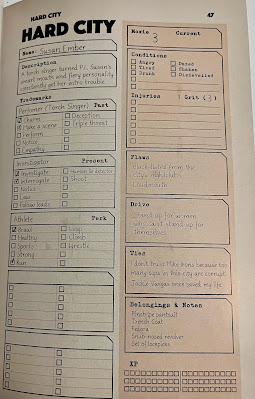 HARD CITY
47
HARD CITY
Name: Susan Ember
Description
A torch singer turned P.I. Susan's
smart mouth and fiery personality
constantly get her into trouble.
Trademarks
Performer (Torch Singer) Past
Charm
Deception
Make a scene
Triple threat
Perform
Notice
Empathy
Investigator Present
Investigate
Human lie detector
Interrogate
Shoot
Notice
Law
Follow leads
Athlete Perk
Brawl
Leap
Healthy
Climb
Sports
Wrestle
Strong
Run
Moxie Current
3
Conditions
Angry
Dazed
Tired
Shaken
Drunk
Dishevelled
Injuries
1 Grit
Flaws
Blacklisted from the
city's nightclubs
Loudmouth
Drive
Stand up for women
who can't stand up for
themselves
Ties
I don't trust Mike
because too
many cops in this city are corrupt.
Jackie Vargas once saved my life.
Belongings & Notes
Pinstripe pantsuit
Trench Coat
Fedora
Snub-nosed revolver
Set of lockpicks
XP